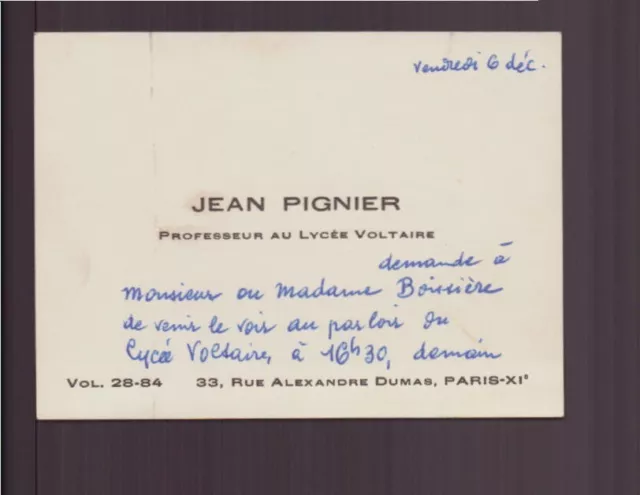 vendredi 6 déc.
JEAN PIGNIER
PROFESSEUR AU LYCÉE VOLTAIRE
demande à
monsieur ou madame Boissière
de venir le voir au parloir du
Lycée Voltaire, à 16h30, demain
VOL. 28-84 33, RUE ALEXANDRE DUMAS, PARIS-XIe